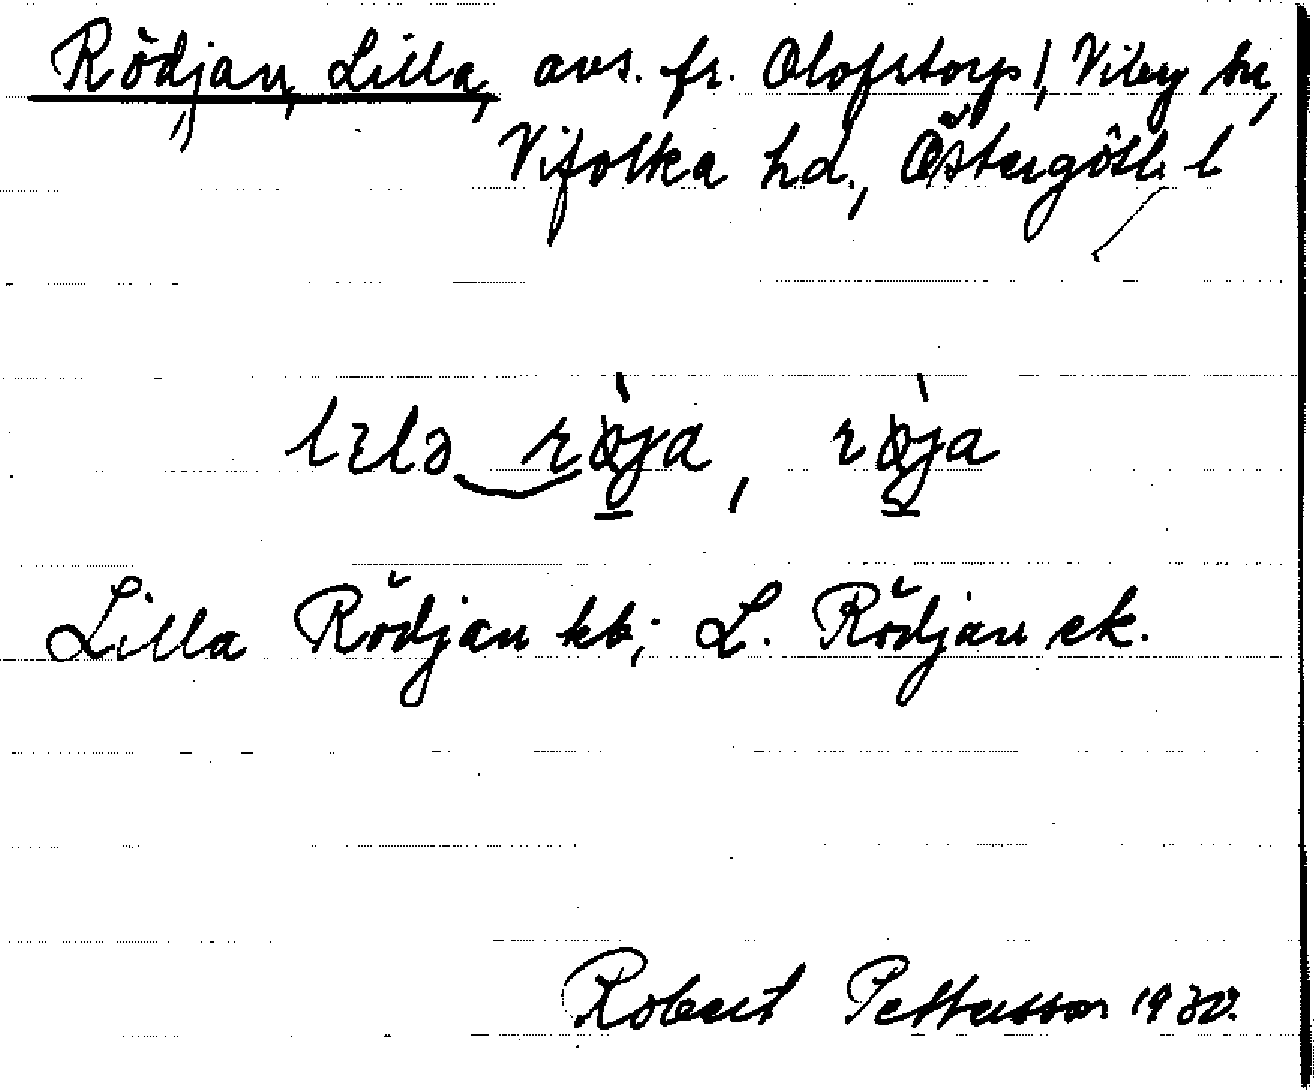 Rödjan, Lilla, avs. fr. Olofstorp 1, Viby sn,
Vifolka hd., Östergötl. l
lɩlə rø̀ja, rø̀ja
Lilla Rödjan kb; L. Rödjan ek.
Robert Pettersson 1930.